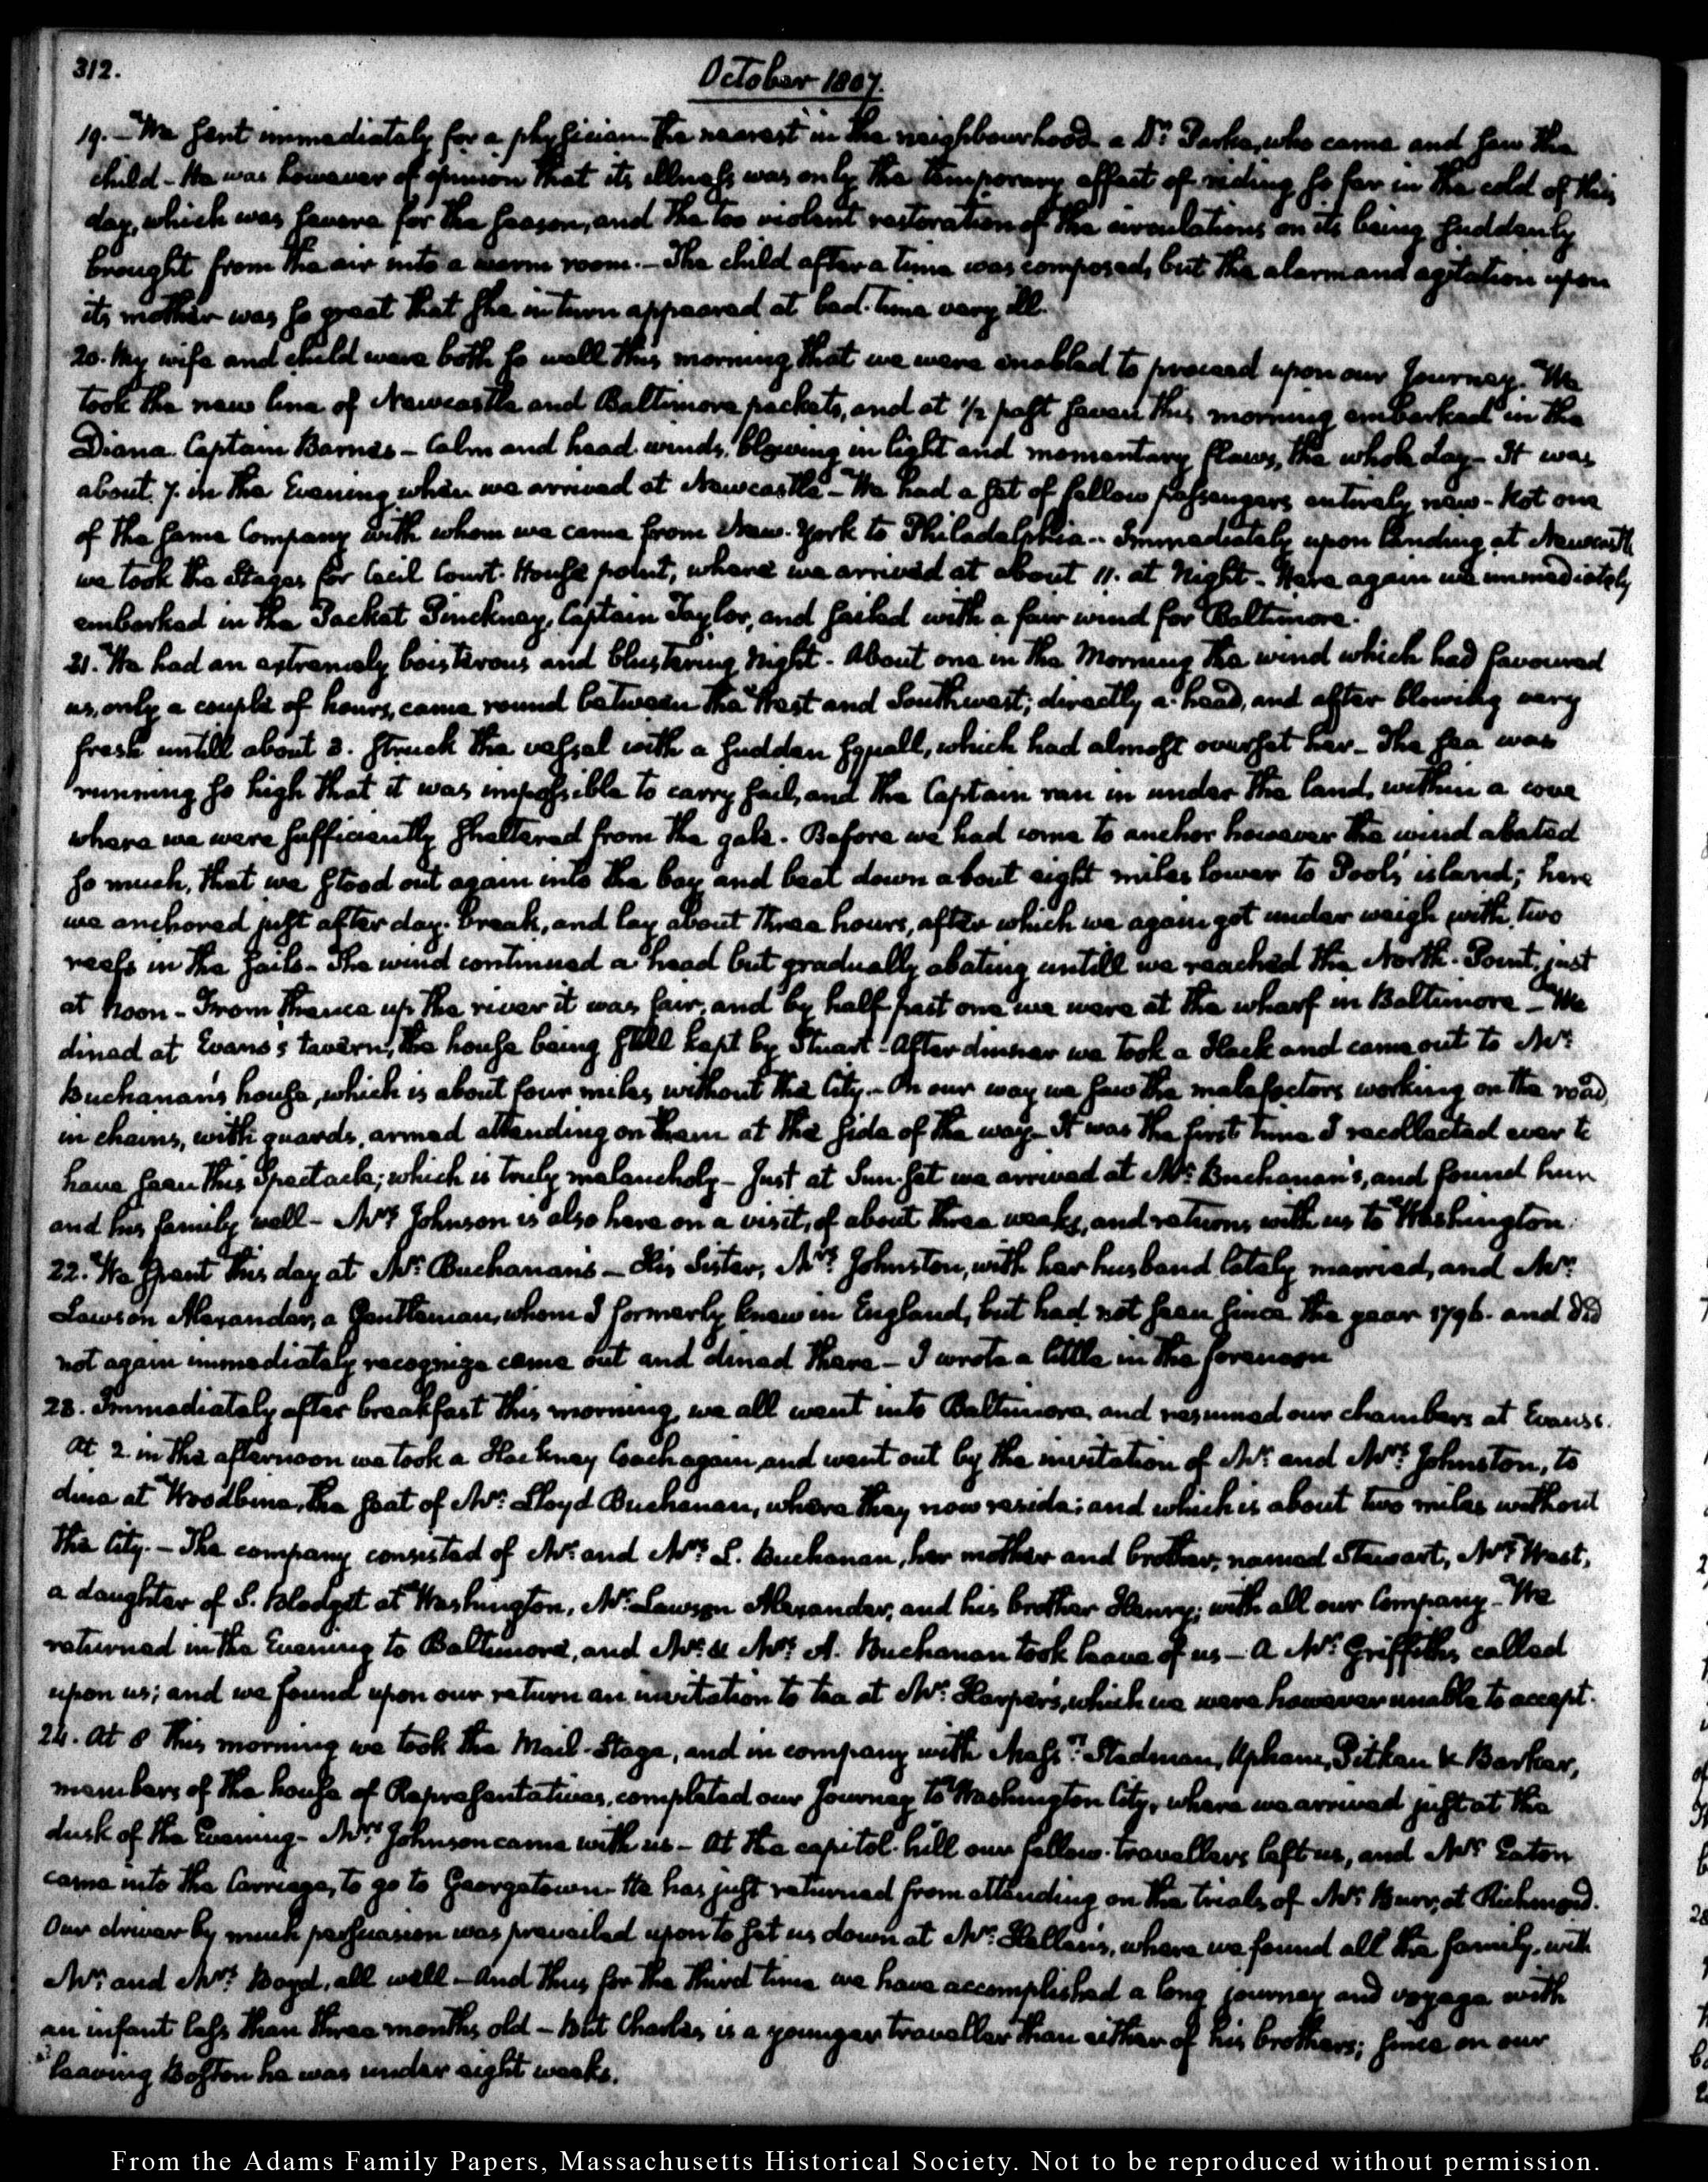 312.
October 1807.
19. – We sent immediately for a physician the nearest in the neighbourhood a Dr. Parke, who came and saw the
child – He was however of opinion that its illness was only the temporary effect of riding so far in the cold of this
day, which was severe for the season, and the too violent restoration of the circulations on its being suddenly
brought from the air into a warm room. – The child after a time was composed, but the alarm and agitation upon
its mother was so great that she in turn appeared at bed-time very ill.
20. My wife and child were both so well this morning, that we were enabled to proceed upon our Journey. We
took the new line of Newcastle and Baltimore packets, and at 1/2 past seven this morning embarked in the
Diana. Captain Barnes – Calm and head winds, blowing in light and momentary flaws, the whole day – It was
about 7. in the Evening when we arrived at Newcastle – We had a set of fellow passengers entirely new – Not one
of the same Company with whom we came from New-York to Philadelphia – Immediately upon landing at Newcastle
we took the Stages for Cecil Court-House point, where we arrived at about 11. at Night – Here again we immediately
embarked in the Packet Pinckney, Captain Taylor, and sailed with a fair wind for Baltimore.
21. We had an extremely boisterous and blustering Night – About one in the Morning the wind which had favoured
us, only a couple of hours, came round between the West and Southwest; directly a-head, and after blowing very
fresh untill about 3. struck the vessel with a sudden squall, which had almost overset her – The sea was
running so high that it was impossible to carry sail, and the Captain ran in under the land, within a cove
where we were sufficiently sheltered from the gale. Before we had come to anchor however the wind abated
so much, that we stood out again into the bay and beat down about eight miles lower to Pool's island; here
we anchored just after day-break, and lay about three hours, after which we again got under weigh with two
reefs in the sails – The wind continued a head but gradually abating untill we reached the North-Point, just
at Noon – From thence up the river it was fair, and by half past one we were at the wharf in Baltimore – We
dined at Evans's tavern, the house being still kept by Stuart. After dinner we took a Hack and came out to Mr.
Buchanan's house, which is about four miles without the City – On our way we saw the malefactors working on the road,
in chains, with guards, armed attending on them at the side of the way – It was the first time I recollected ever to
have seen this Spectacle; which is truly melancholy – Just at Sun-set we arrived at Mr. Buchanan's, and found him
and his family well – Mrs. Johnson is also here on a visit, of about three weeks, and returns with us to Washington.
22. We spent this day at Mr. Buchanan's – His Sister, Mrs. Johnston, with her husband lately married, and Mr.
Lawson Alexander, a Gentleman, whom I formerly knew in England, but had not seen since the year 1796. and did
not again immediately recognize came out and dined there – I wrote a little in the forenoon
23. Immediately after breakfast this morning, we all went into Baltimore, and resumed our chambers at Evans's.
At 2 in the afternoon we took a Hackney Coach again, and went out by the invitation of Mr. and Mrs. Johnston, to
dine at Woodbine, the seat of Mr. Lloyd Buchanan, where they now reside; and which is about two miles without
the City. – The company consisted of Mr. and Mrs. L. Buchanan, her mother and brother, named Stewart, Mrs. West,
a daughter of S. Blodget at Washington, Mr. Lawson Alexander, and his brother Henry; with all our Company – We
returned in the Evening to Baltimore, and Mr. & Mrs. A. Buchanan took leave of us – A Mr. Griffiths called
upon us; and we found upon our return an invitation to tea at Mr. Harper's, which we were however unable to accept.
24. At 8 this morning we took the Mail-Stage, and in company with Messrs. Stedman, Upham, Pitkin & Barker,
members of the house of Representatives, completed our Journey to Washington City, where we arrived just at the
dusk of the Evening – Mrs. Johnson came with us – At the capitol-hill our fellow-travellers left us, and Mr. Eaton
came into the Carriage, to go to Georgetown – He has just returned from attending on the trials, of Mr. Burr, at Richmond.
Our driver by much persuasion was prevailed upon to set us down at Mr. Hellen's, where we found all the family, with
Mr. and Mrs. Boyd, all well – And thus for the third time we have accomplished a long journey and voyage with
an infant less than three months old – But Charles is a younger traveller than either of his brothers; since on our
leaving Boston he was under eight weeks.
From the Adams Family Papers, Massachusetts Historical Society. Not to be reproduced without permission.